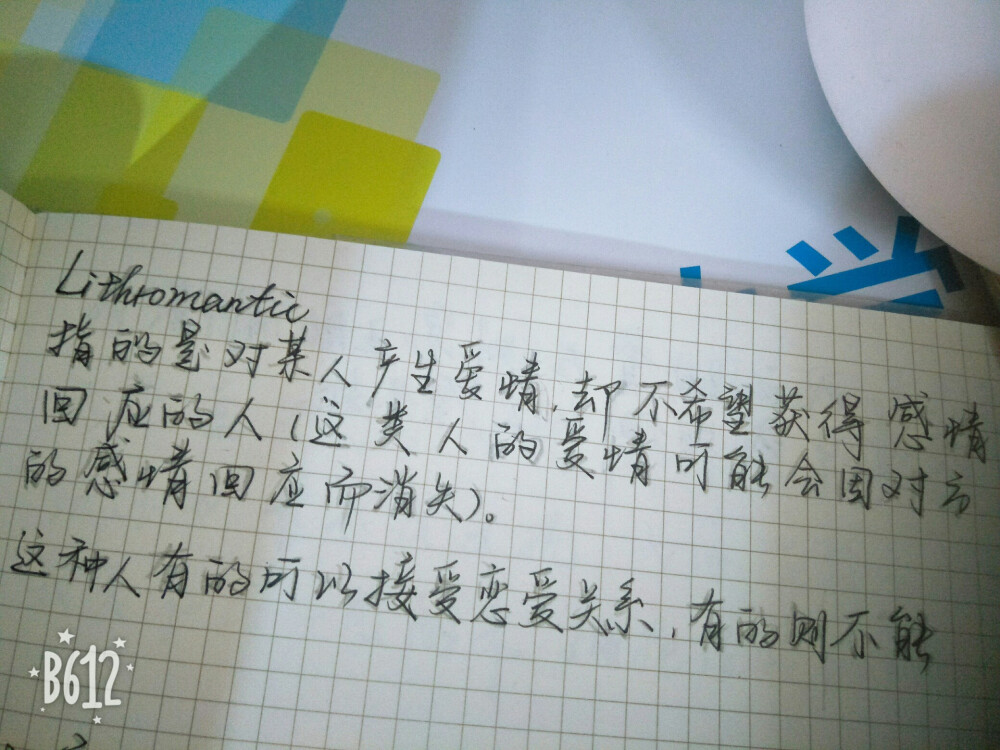 Lithromantic
指的是对某人产生爱情,却不希望获得感情
回应的人(这类人的爱情可能会因对方
的感情回应而消失)。
这种人有的可以接受恋爱关系,有的则不能
B612